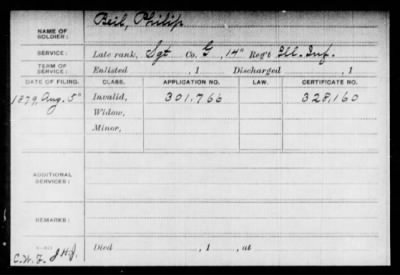 NAME OF SOLDIER: Beil, Philip
SERVICE: Late rank, Sgt Co. G, 14" Reg't Ill. Inf.
TERM OF SERVICE: Enlisted , 1 Discharged , 1
DATE OF FILING. CLASS. APPLICATION NO. LAW. CERTIFICATE NO.
1879, Aug. 5" Invalid, 301,766 328,160
Widow,
Minor,
ADDITIONAL SERVICES:
REMARKS:
C.W.F. J.H.J. Died , 1 , at